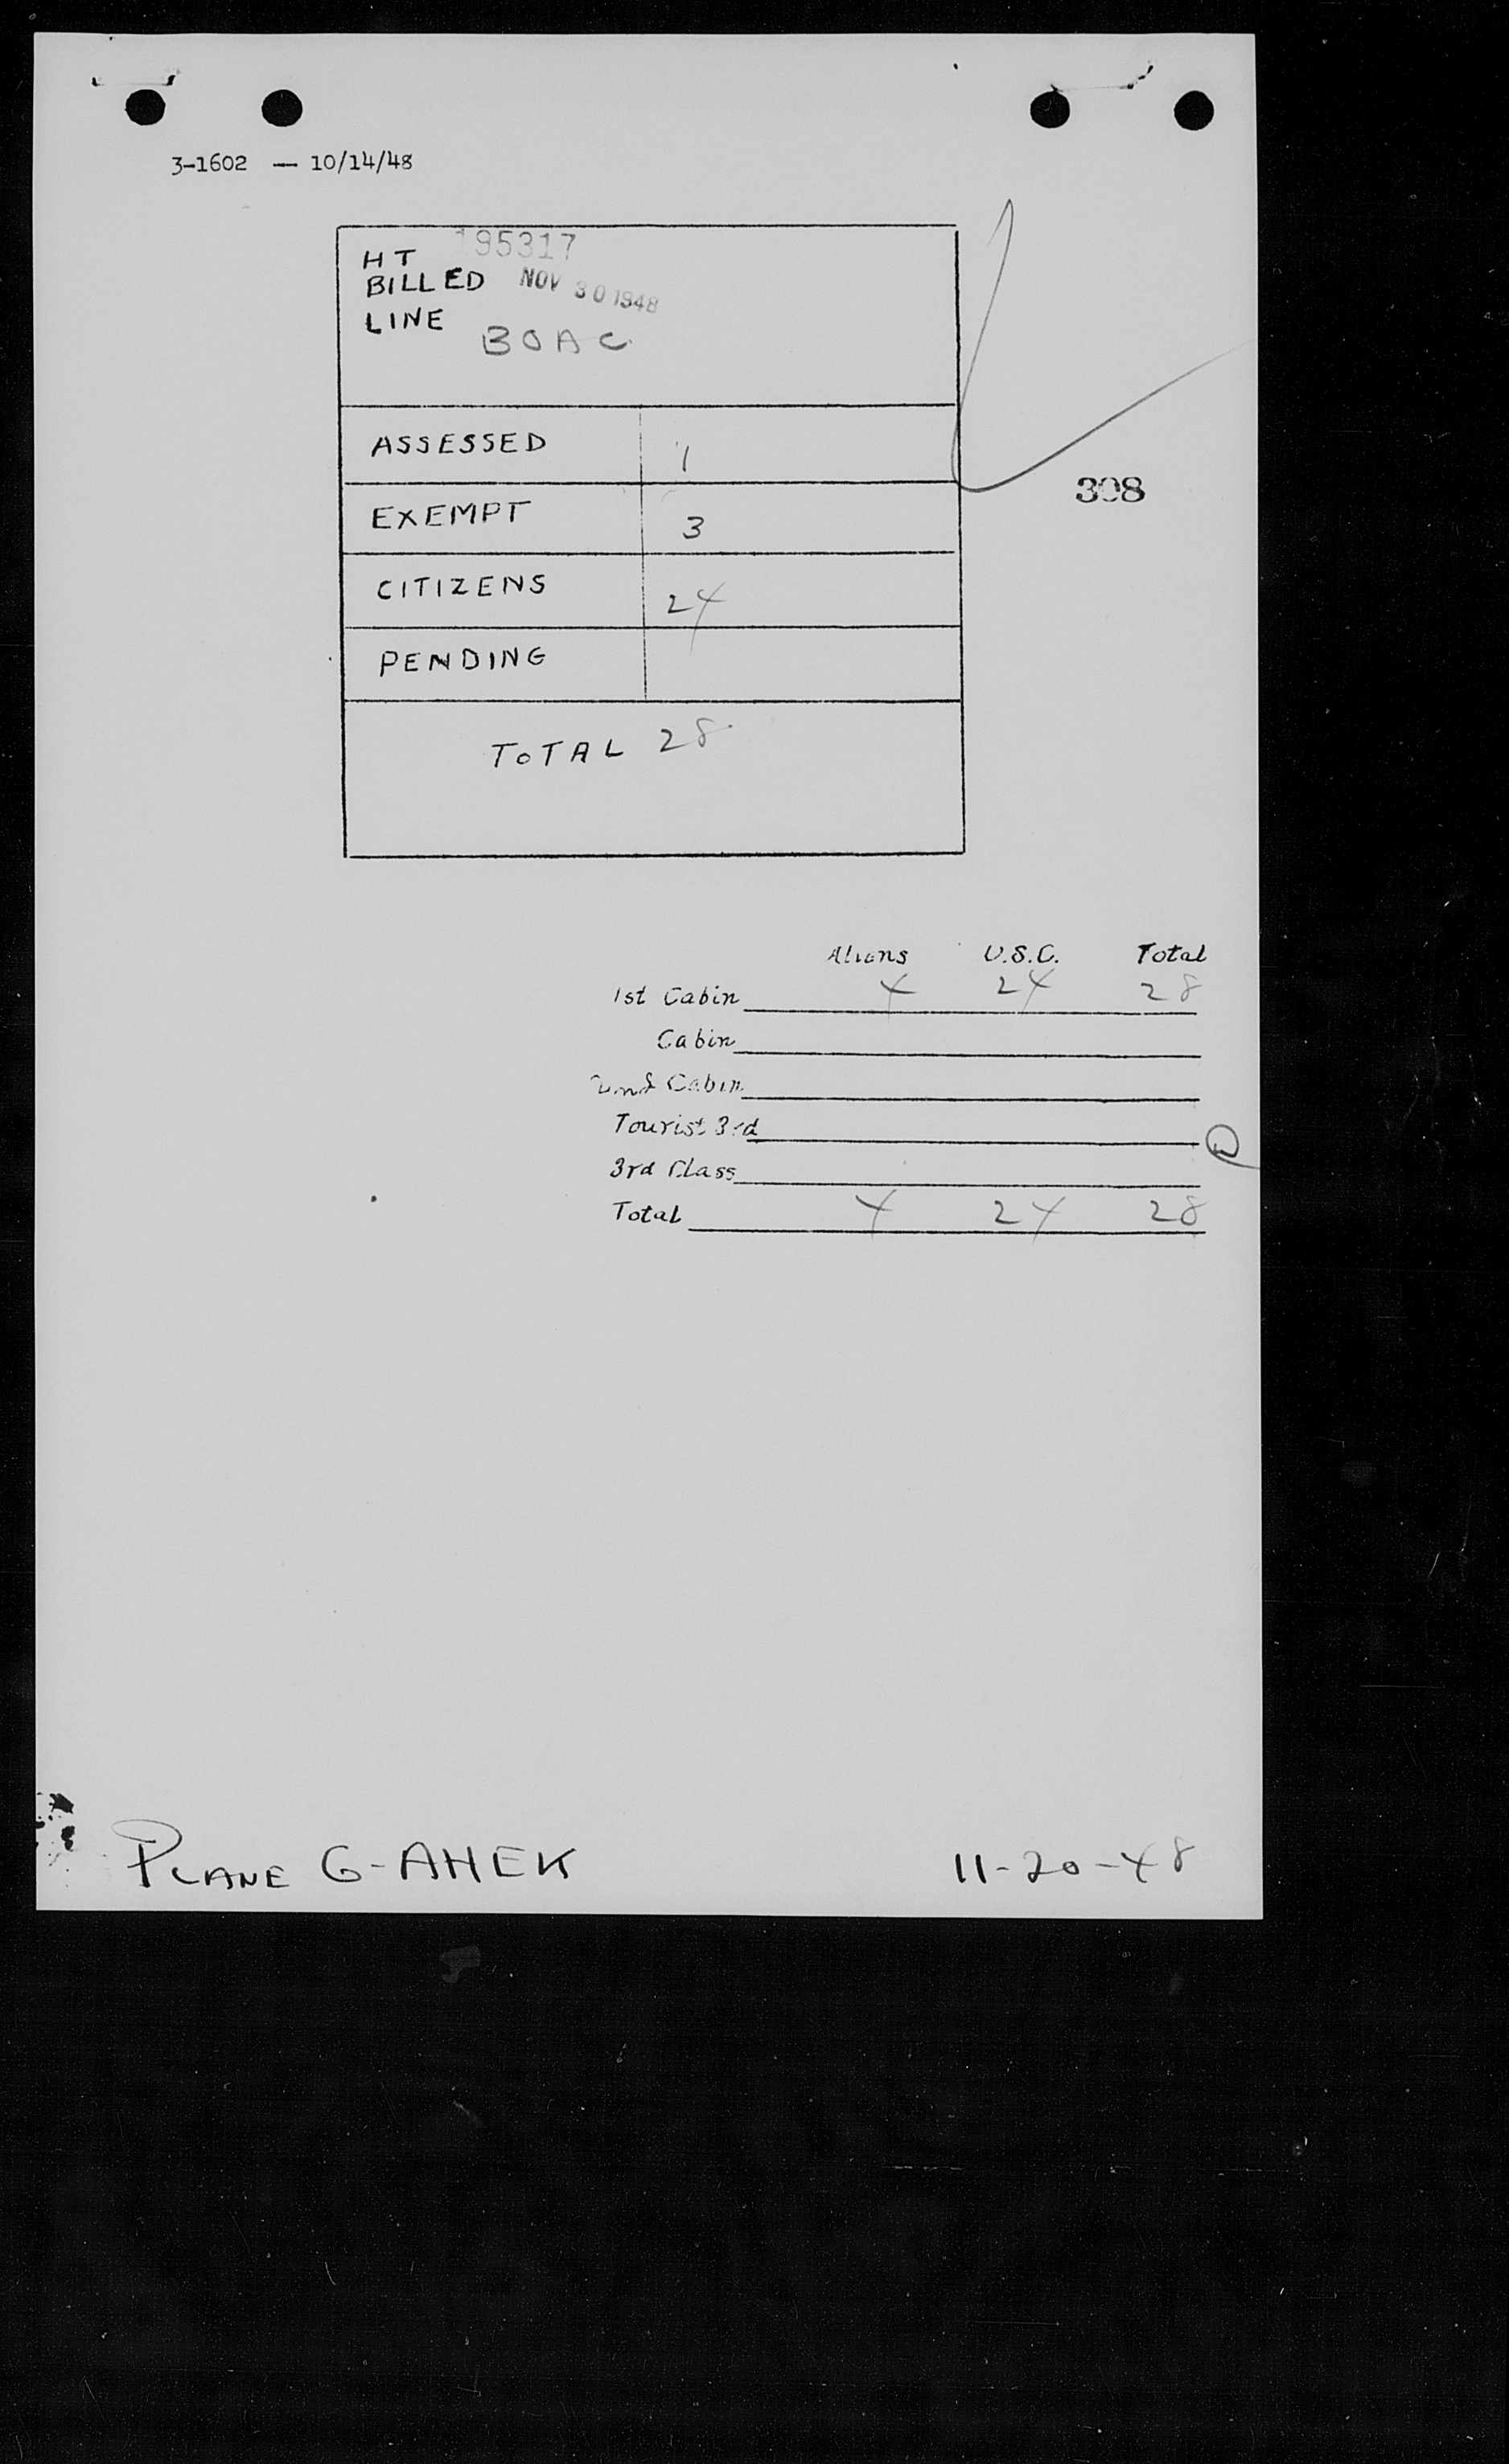 3-1602 — 10/14/48
HT 195317
BILLED NOV 30 1948
LINE BOAC
ASSESSED 1
EXEMPT 3
CITIZENS 24
PENDING
TOTAL 28
308
Aliens U.S.C. Total
1st Cabin 4 24 28
Cabin
2nd Cabin
Tourist 3rd
3rd Class
Total 4 24 28
PLANE G-AHEK 11-20-48